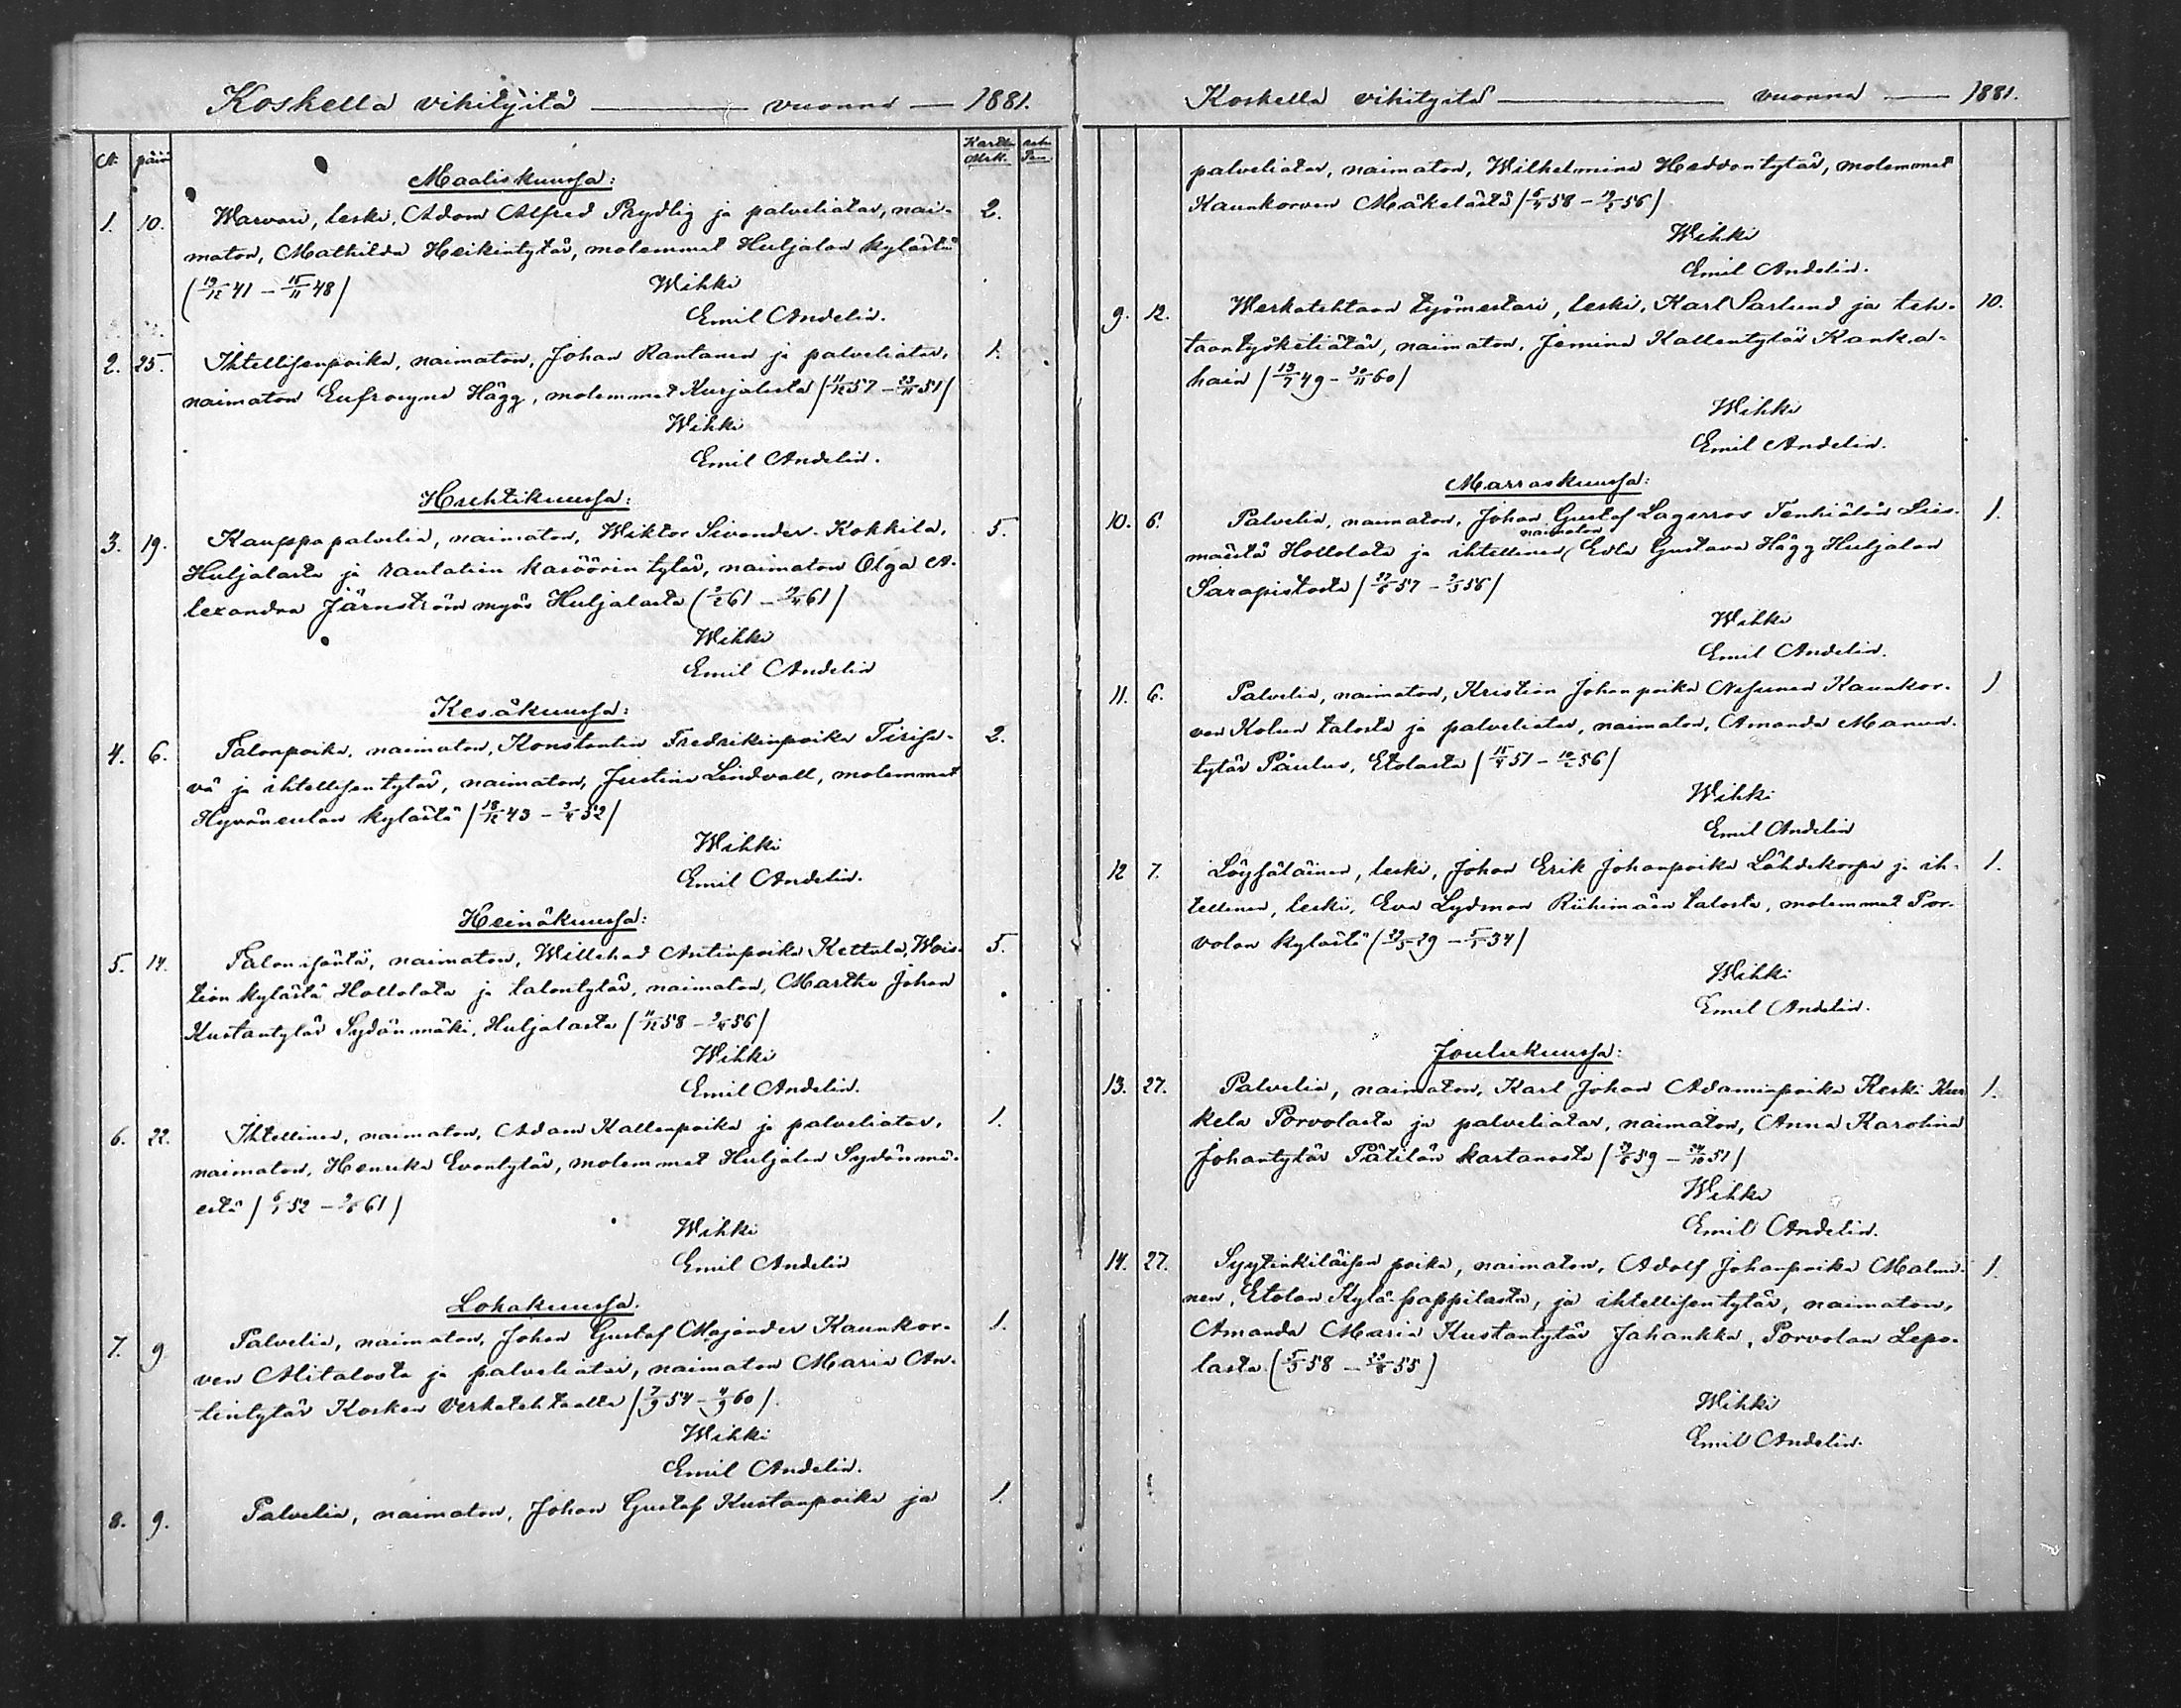 Koskella vihityitä — vuonna — 1881.
N. päiv
Maaliskuussa:
1. 10. Warvari, leski, Adam Alfred Prydlig ja palveliatar, nai- 2.
maton, Mathilda Heikintytär, molemmat Huljalan kylästä
(19/12 41 – 15/11 48)
Wihki
Emil Andelin.
2. 25. Ihtellisenpoika, naimaton, Johan Rantanen ja palveliatar, 1.
naimaton Eufrosyne Hägg, molemmat Kurjalasta (11/12 57 – 23/11 51)
Wihki
Emil Andelin.
Huhtikuussa:
3. 19. Kauppapalvelia, naimaton, Wiktor Sivander-Kokkila, 5.
Huljalasta ja rautatien kasöörin tytär, naimaton Olga A-
lexandra Järnström myös Huljalasta
Wihki
Emil Andelin
Kesäkuussa:
4. 6. Talonpoika, naimaton, Konstantin Fredrikinpoika Tirise- 2.
vä ja ihtellisen tytär, naimaton, Justina Lindvall, molemmat
Hyväneulan kylästä (18/12 43 – 3/4 52)
Wihki
Emil Andelin.
Heinäkuussa:
5. 14. Talon isäntä, naimaton, Willehad Antinpoika Kettula, Wois- 5.
tion kylästä Hollolata ja talontytär, naimaton, Martha Johan
Kustantytär Sydänmäki, Huljalasta (11/12 58 – 3/4 56)
Wihki
Emil Andelin.
6. 22. Ihtellinen, naimaton, Adam Kallenpoika ja palveliatar, 1.
naimaton, Henrika Evantytär, molemmat Huljalan Sydänmä-
estä
Wihki
Emil Andelin
Lokakuussa.
7. 9 Palvelia, naimaton, Johan Gustaf Majander Kaunkor- 1.
ven Alitalosta ja palveliatar, naimaton Maria An-
tintytär Kosken Verkatehtaalta (7/9 54 – 4/9 60).
Wihki
Emil Andelin.
8. 9. Palvelia, naimaton, Johan Gustaf Kustanpoika ja 1.
Koskella vihityitä — vuonna — 1881.
palveliatar, naimaton, Wilhelmina Heddantytär, molemmat
Kaunkorven Mäkelästä
Wihki
Emil Andelin.
9. 12. Werkatehtaan työmestari, leski, Karl Sarlund ja teh- 10.
taantyöketiätär, naimaton, Jemina Kallentytär Kanka-
hain (13/7 49 – 30/11 60)
Wihki
Emil Andelin.
Marraskuussa:
10. 6. Palvelia, naimaton, Johan Gustaf Lagerros Tenhiälän Lies- 1.
naimaton
mäestä Hollolata ja ihtellinen Evla Gustava Hägg Huljalan
Sarapistosta
Wihki
Emil Andelin.
11. 6. Palvelia, naimaton, Kristian Johanpoika Nesunen Kaunkor- 1
ven Kolun talosta ja palveliatar, naimaton, Amanda Manun-
tytär Paulus, Etolasta
Wihki
Emil Andelin
12 7. Löysäläinen, leski, Johan Erik Johanpoika Lähdekorpi ja ih- 1.
tellinen, leski, Eva Lydman Riihimäen talosta, molemmat Por-
volan kylästä
Wihki
Emil Andelin.
Joulukuussa:
13. 27. Palvelia, naimaton, Karl Johan Adaminpoika Keski Kur 1.
kela Porvolasta ja palveliatar, naimaton, Anna Karolina
Johantytär Pätilän kartanosta
Wihki
Emil Andelin.
14. 27. Syytinkiläisen poika, naimaton, Adolf Johanpoika Malmi- 1.
nen, Etolan Kylä-pappilasta, ja ihtellisen tytär, naimaton,
Amanda Maria Kustantytär Jahankka, Porvolan Lepo-
lasta
Wihki
Emil Andelin.